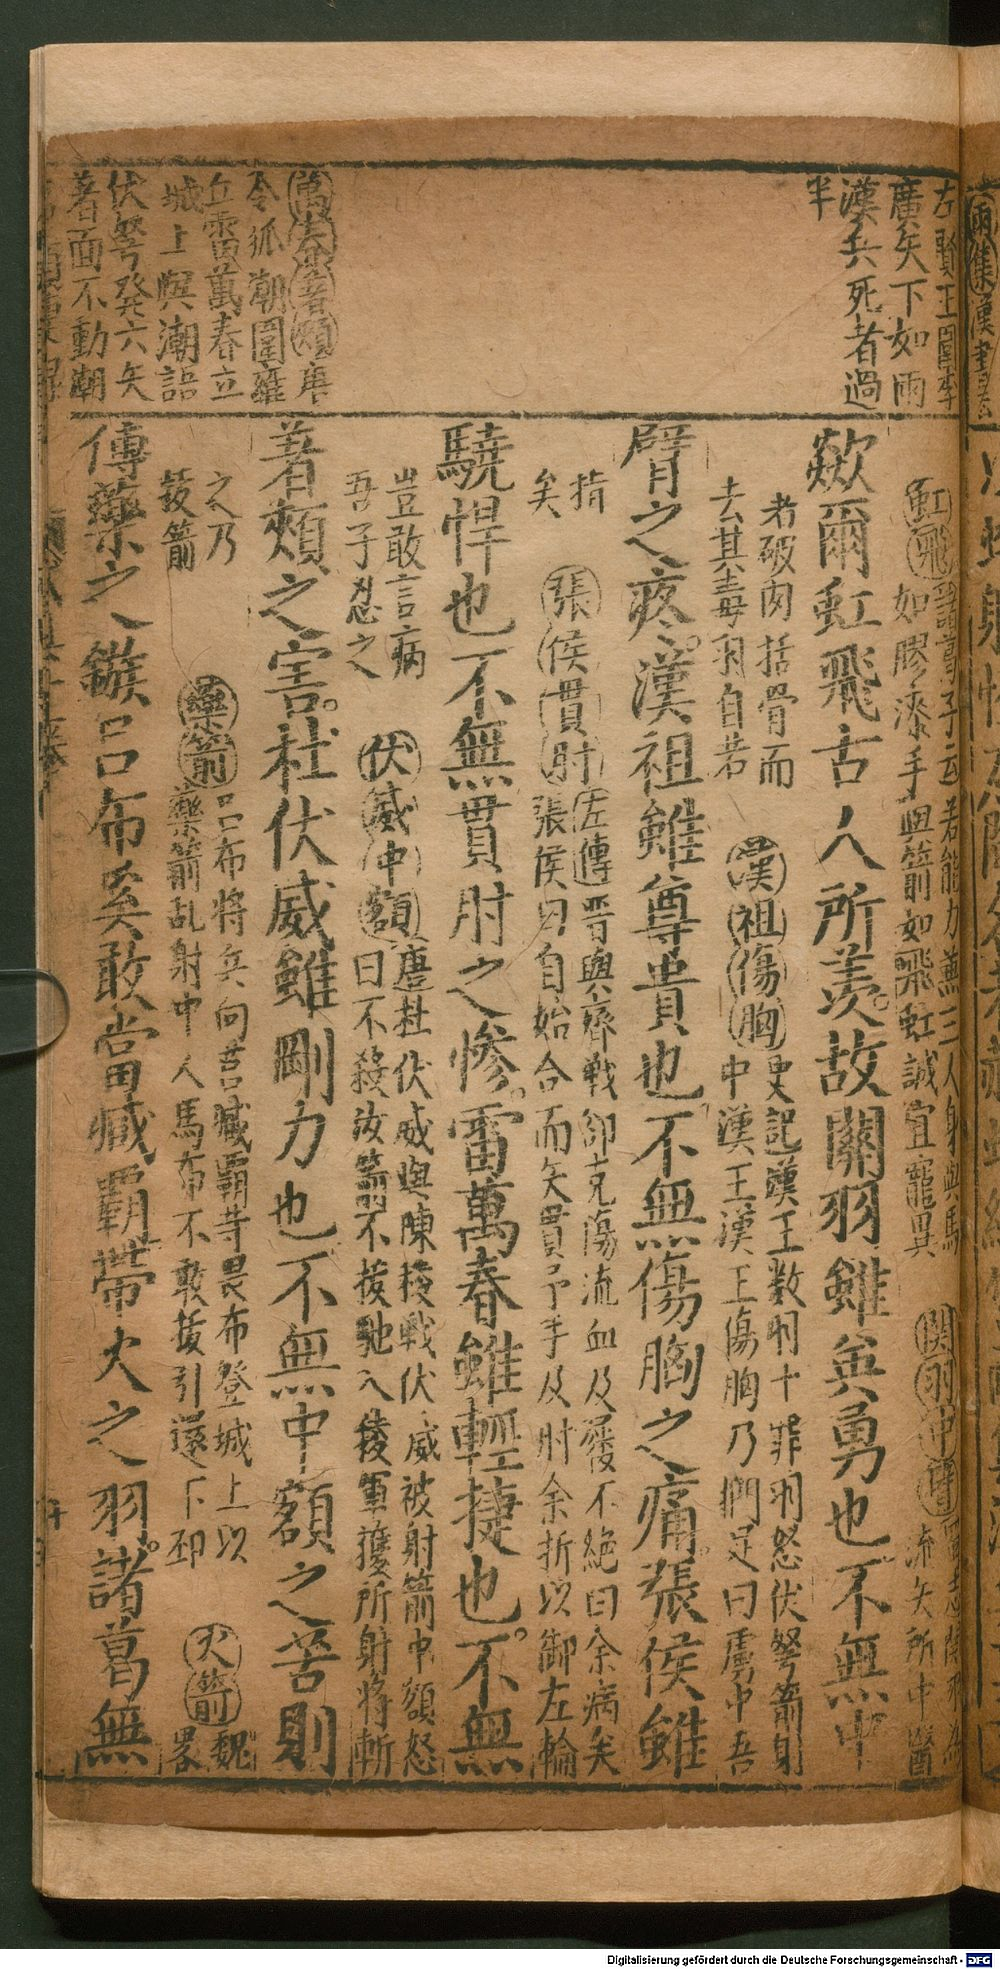 左賢王圍李
廣矢下如雨
漢兵死者過
半
萬春著頰唐
令狐潮圍雍
丘雷萬春立
城上與潮語
伏弩発六矢
著面不動潮
虹飛諸葛子云若能力兼三人身與馬
如膠漆手與箭如飛虹誠宜寵異
関羽中臂
流矢所中醫
歘爾虹飛古人所羨故關羽雖英勇也不無中
者破肉括骨而
去其毒羽自若
漢祖傷胸史記漢王数羽十罪羽怒伏弩箭射
中漢王漢王傷胸乃捫足曰虜中吾
臂之疼漢祖雖尊貴也不無傷胸之痛張侯雖
指
矣
張侯貫肘左傳晋與齊戰郤克傷流血及屨不絶曰余病矣
張侯曰自始合而矢貫予手及肘余折以御左輪
驍悍也不無貫肘之慘雷萬春雖輕捷也不無
豈敢言病
吾子忍之
伏威中額唐杜伏威與陳稜戰伏威被射箭中額怒
曰不殺汝箭不拔馳入稜軍獲所射將斬
著頰之害杜伏威雖剛力也不無中額之苦則
之乃
拔箭
藥箭呂布將兵向莒臧覇等畏布登城上以
藥箭乱射中人馬布不敢援引還下邳
火箭魏
畧
傅藥之鏃呂布奚敢當臧覇帶火之羽諸葛無
Digitalisierung gefördert durch die Deutsche Forschungsgemeinschaft - DFG